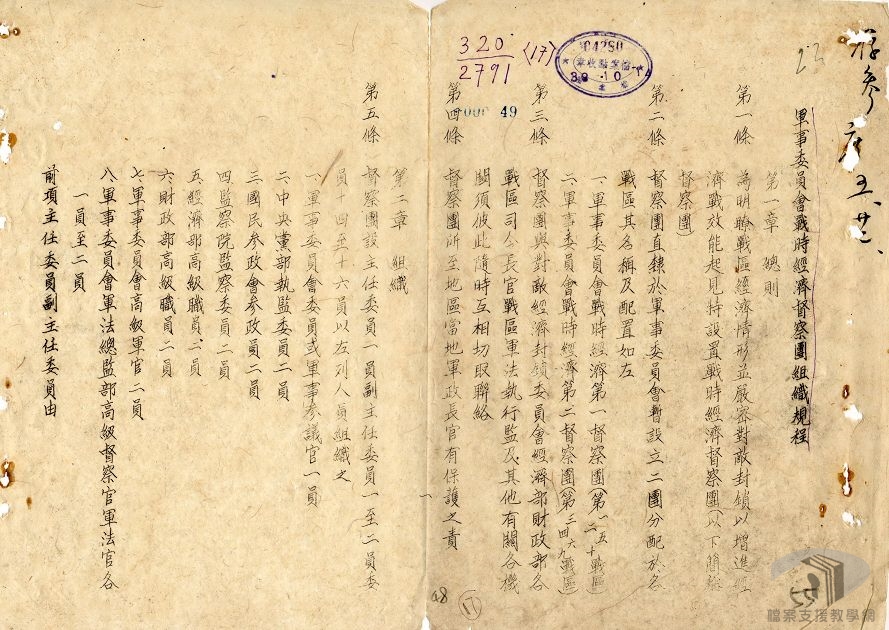 存參
五、廿、
320
2791
(17)
104280
檔案點收章
39.10.1
000 49
軍事委員會戰時經濟督察團組織規程
第一章 總則
第一條 為明瞭戰區經濟情形並嚴密對敵封鎖以增進經
濟戰效能起見特設置戰時經濟督察團(以下簡稱
督察團)
第二條 督察團直隸於軍事委員會暫設立二團分配於各
戰區其名稱及配置如左
一、軍事委員會戰時經濟第一督察團(第一二五十戰區)
二、軍事委員會戰時經濟第二督察團(第三四六九戰區)
第三條 督察團與對敵經濟封鎖委員會經濟部財政部各
戰區司令長官戰區軍法執行監及其他有關各機
關須彼此隨時互相切取聯絡
第四條 督察團所至地區當地軍政長官有保護之責
一
第二章 組織
第五條 督察團設主任委員一員副主任委員一至二員委
員十四至十六員以左列人員組織之
一、軍事委員會委員或軍事參議官一員
二、中央黨部執監委員二員
三、國民參政會參政員二員
四、監察院監察委員二員
五、經濟部高級職員二員
六、財政部高級職員二員
七、軍事委員會高級軍官二員
八、軍事委員會軍法總監部高級督察官軍法官各
一員至二員
前項主任委員副主任委員由
48
17
55
檔案支援教學網